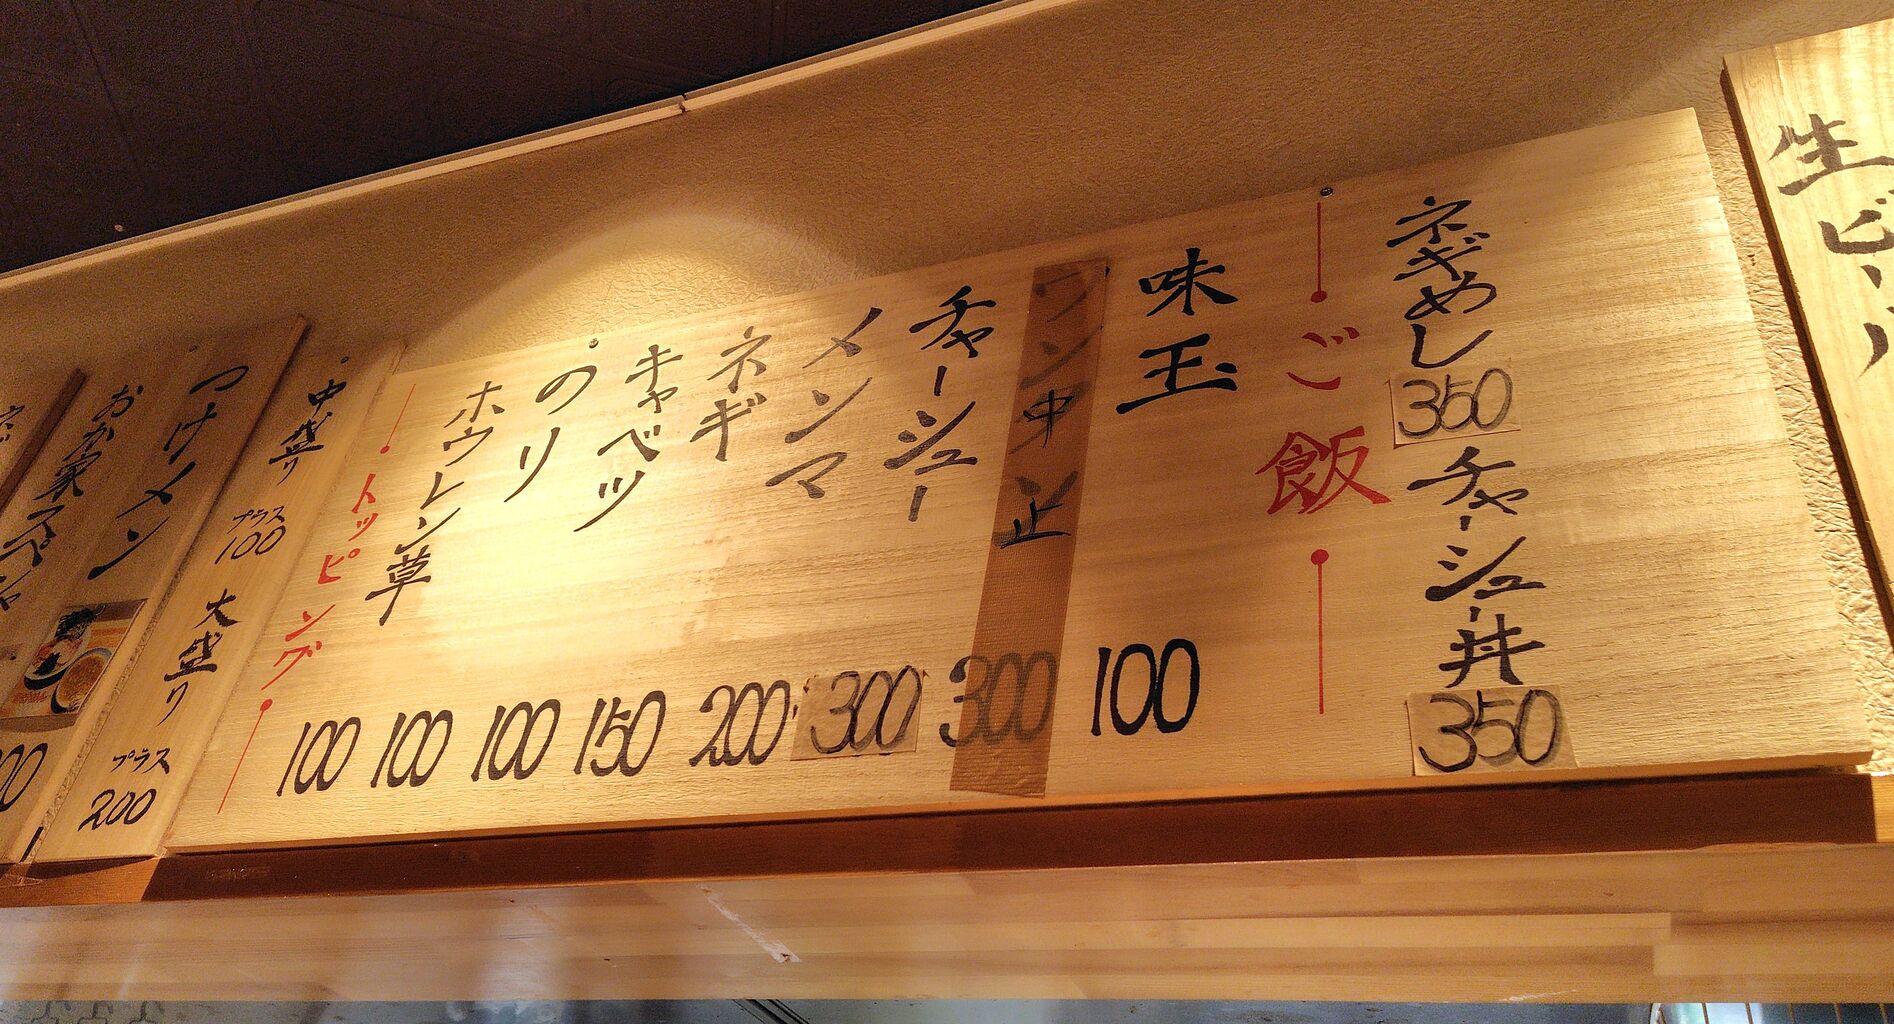 生ビール
ネギめし 350 チャーシュー丼 350
ご飯
味玉 100
中止 300
チャーシュー 300
メンマ 200
ネギ 150
キャベツ 100
のり 100
ホウレン草 100
トッピング
中盛り プラス100 大盛り プラス200
つけメン
おか家スペシャ